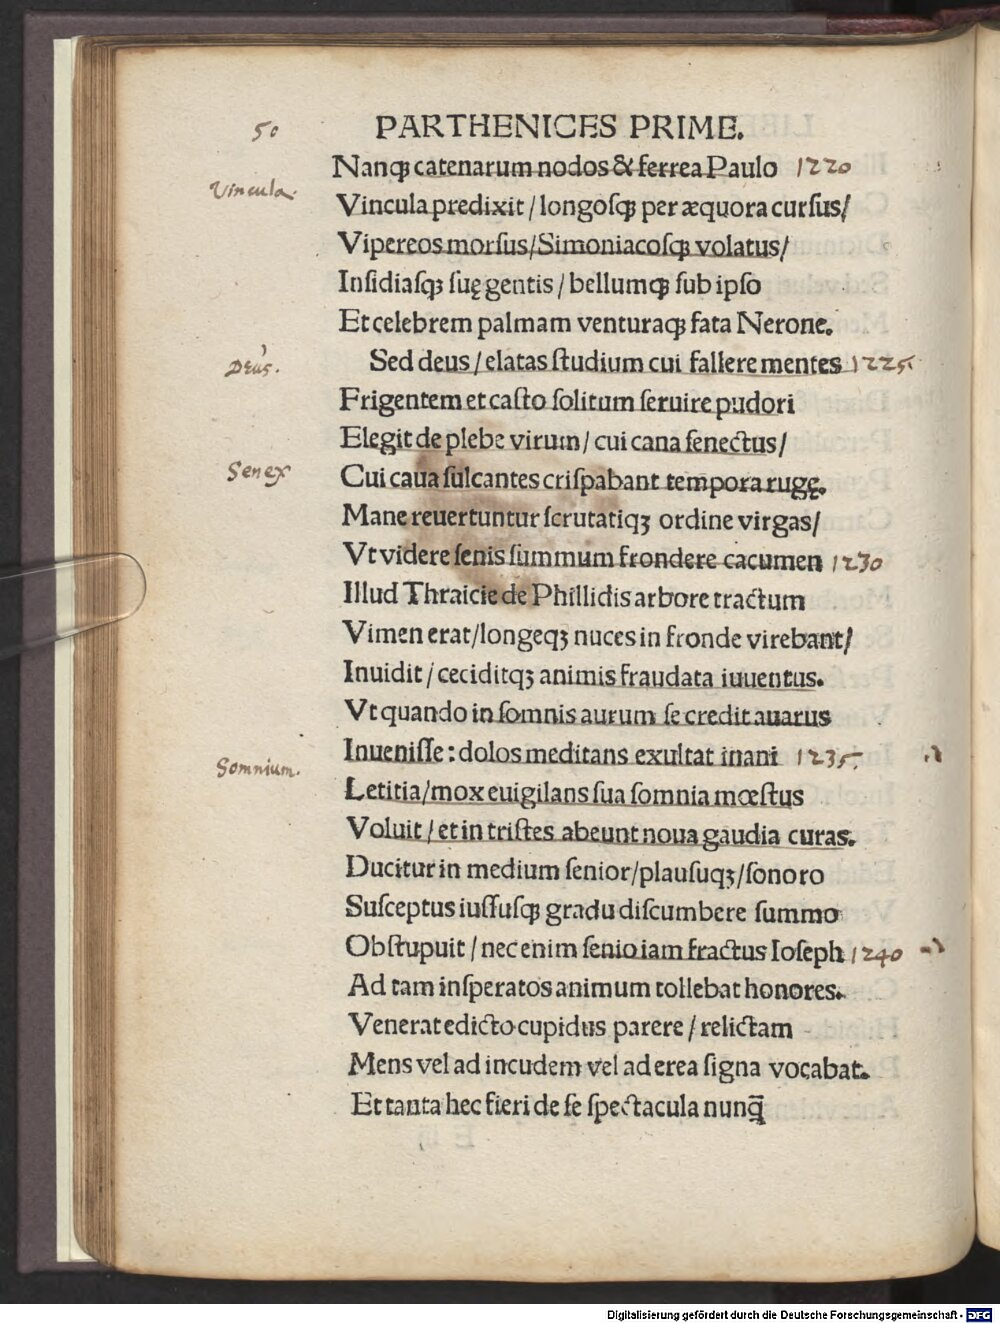 50 PARTHENICES PRIME.
Nanqꝫ catenarum nodos & ferrea Paulo 1220
Vincula.
Vincula predixit / longoſqꝫ per æquora curſus/
Vipereos morſus/Simoniacoſqꝫ volatus/
Inſidiaſqꝫ ſuę gentis / bellumqꝫ ſub ipſo
Et celebrem palmam venturaqꝫ fata Nerone.
Deus.
Sed deus / elatas ſtudium cui fallere mentes 1225
Frigentem et caſto ſolitum ſeruire pudori
Elegit de plebe virum / cui cana ſenectus/
Senex
Cui caua ſulcantes criſpabant tempora rugę.
Mane reuertuntur ſcrutatiqꝫ ordine virgas/
Vt videre ſenis ſummum frondere cacumen 1230
Illud Thraicie de Phillidis arbore tractum
Vimen erat/longeqꝫ nuces in fronde virebant/
Inuidit / ceciditqꝫ animis fraudata iuuentus.
Vt quando in ſomnis aurum ſe credit auarus
Inueniſſe: dolos meditans exultat inani 1235
Somnium.
Letitia/mox euigilans ſua ſomnia mœſtus
Voluit / et in triſtes abeunt noua gaudia curas.
Ducitur in medium ſenior/plauſuqꝫ/ſonoro
Suſceptus iuſſuſqꝫ gradu diſcumbere ſummo
Obſtupuit / nec enim ſenio iam fractus Ioſeph 1240
Ad tam inſperatos animum tollebat honores.
Venerat edicto cupidus parere / relictam
Mens vel ad incudem vel ad erea ſigna vocabat.
Et tanta hec fieri de ſe ſpectacula nunq̄
Digitalisierung gefördert durch die Deutsche Forschungsgemeinschaft - DFG